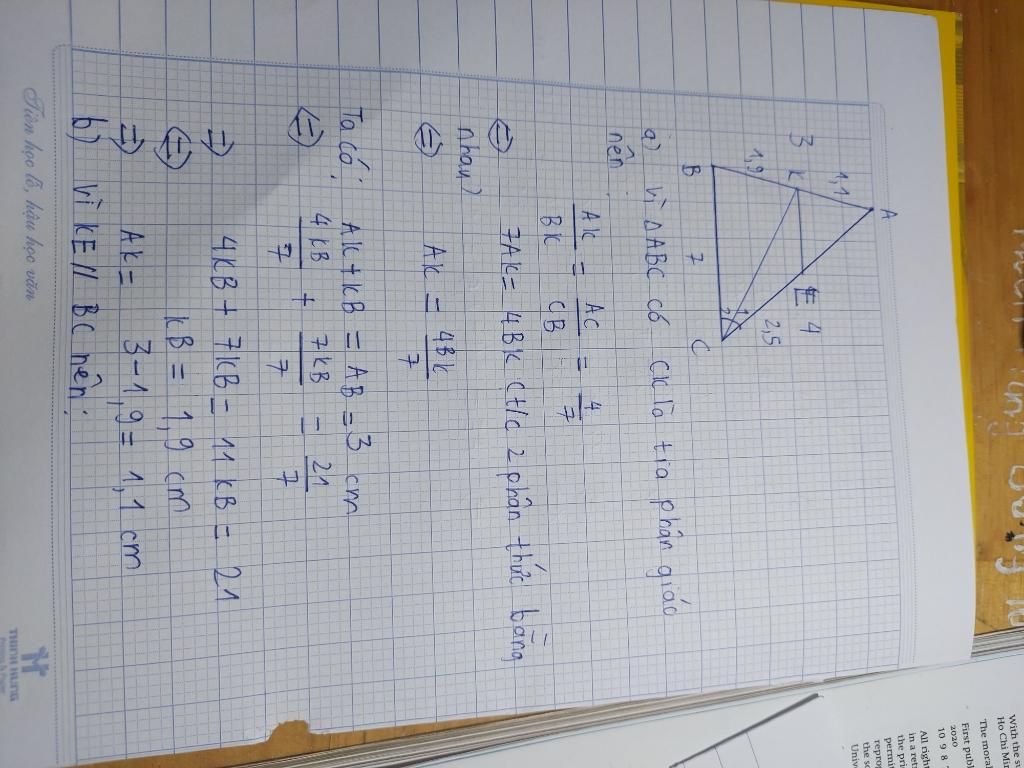 A
1,1
3
K
E
4
1,9
2,5
1
2
B
7
C
a) Vì △ABC có CK là tia phân giác
nên:
AK/BK = AC/CB = 4/7
⇔ 7AK = 4BK (t/c 2 phân thức bằng
nhau)
⇔ AK = 4BK/7
Ta có: AK + KB = AB = 3 cm
⇔ 4KB/7 + 7KB/7 = 21/7
⇒ 4KB + 7KB = 11KB = 21
⇔ KB = 1,9 cm
⇒ AK = 3 - 1,9 = 1,1 cm
b) Vì KE // BC nên:
Tiên học lễ, hậu học văn
With the su
Ho Chi Min
The moral
First publ
2020
10 9 8 7
All righ
in a retri
the pri
permi
repro
the s
Univ